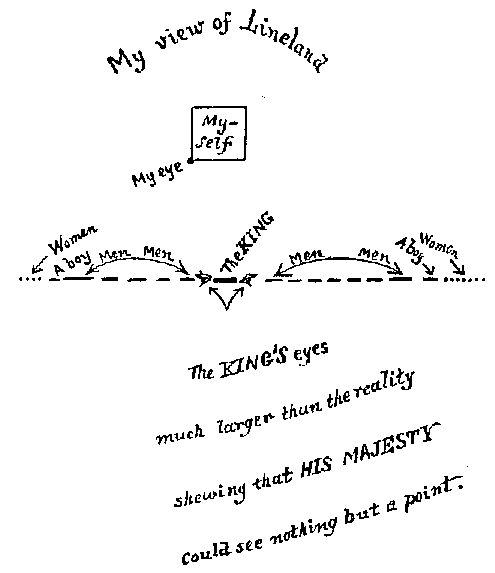 My view of Lineland
My-
self
My eye
The KING
Women
A boy
Men
Men
Men
Men
A boy
Women
The KING'S eyes
much larger than the reality
shewing that HIS MAJESTY
could see nothing but a point.